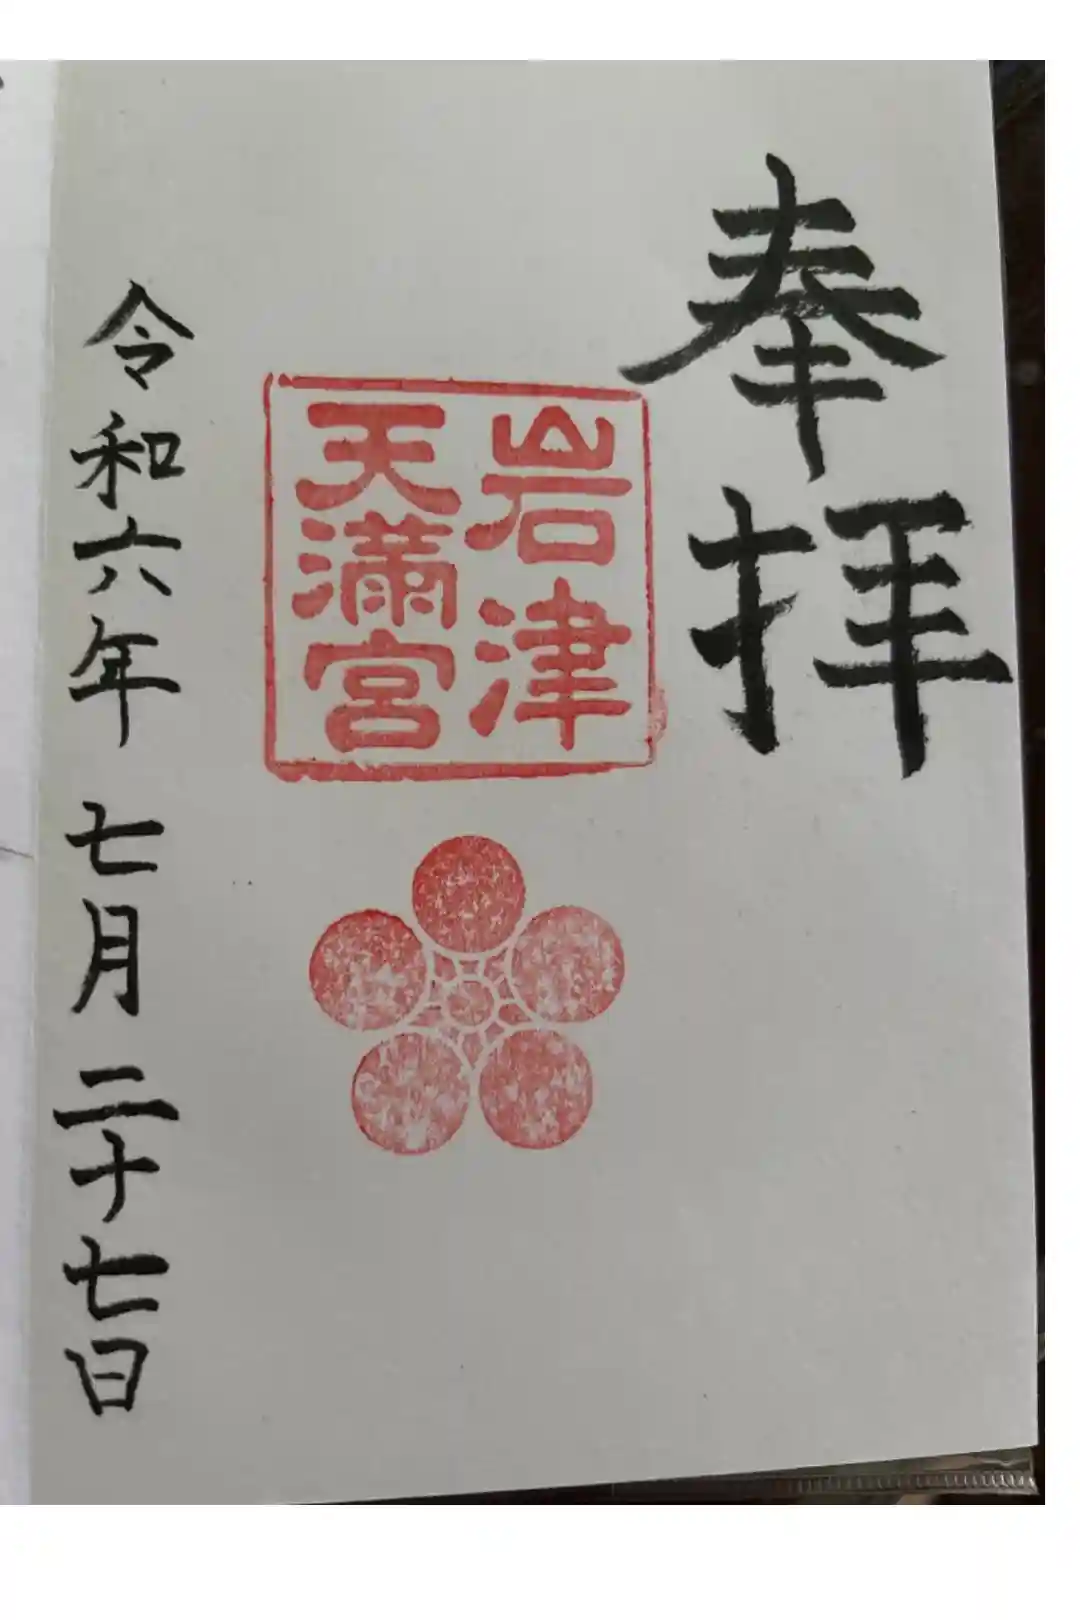 奉拝
岩津
天満宮
令和六年 七月 二十七日